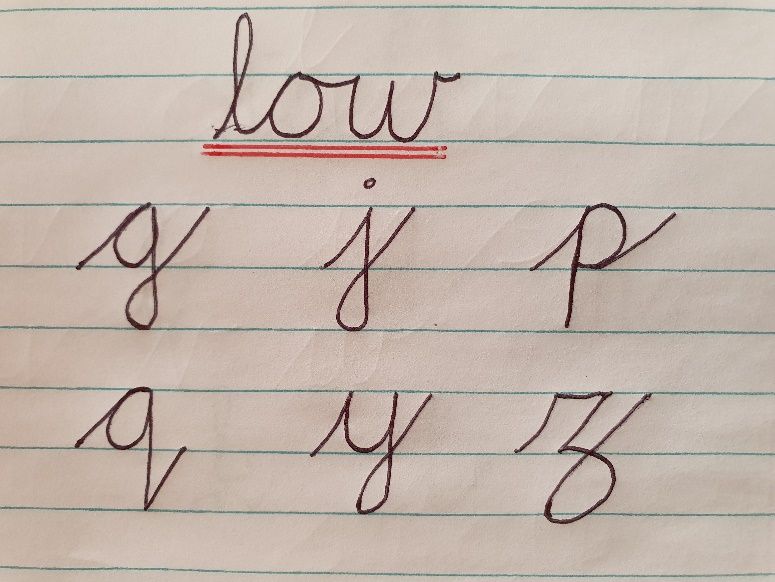 low
g j p
q y z